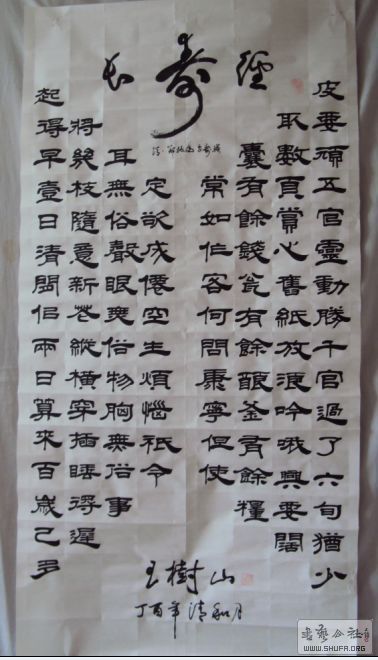 長壽經
清·鄭板橋自壽聯
常如作客何問康寧但使
囊有餘錢瓮有餘釀釜有餘糧
取數頁賞心舊紙放浪吟哦興要闊
皮要頑五官靈動勝千官過了六旬猶少
定欲成僊空生煩惱祇令
耳無俗聲眼無俗物胸無俗事
將幾枝隨意新花縱橫穿插睡得遲
起得早壹日清閒佀兩日算來百歲已多
王樹山
丁酉年清和月
WWW.SHUFA.ORG